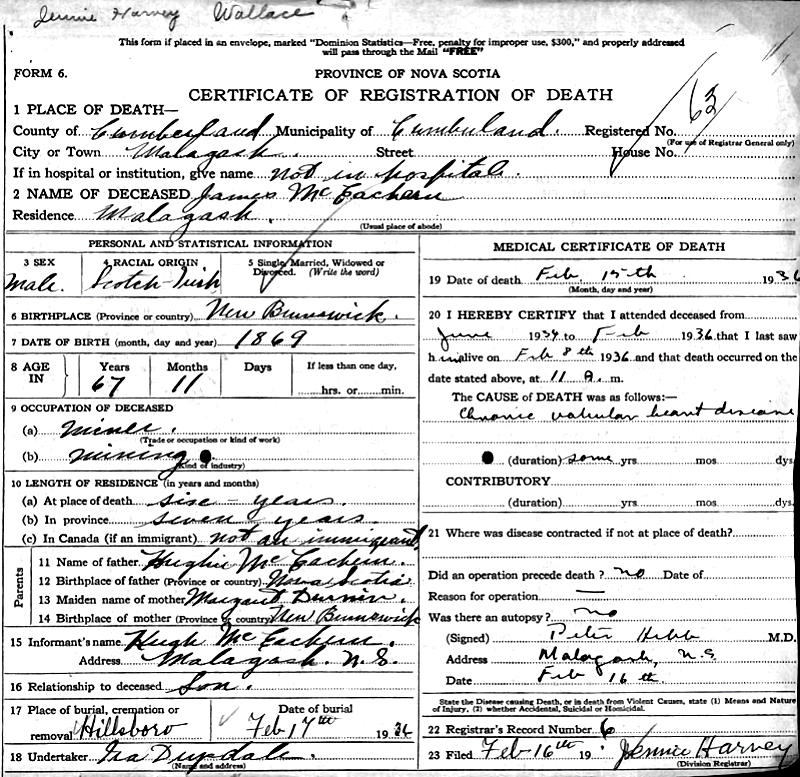 Jennie Harvey Wallace
This form if placed in an envelope, marked "Dominion Statistics—Free, penalty for improper use, $300," and properly addressed
will pass through the Mail "FREE"
FORM 6.
PROVINCE OF NOVA SCOTIA
CERTIFICATE OF REGISTRATION OF DEATH
63
1 PLACE OF DEATH—
County of Cumberland Municipality of Cumberland. Registered No.
(For use of Registrar General only)
City or Town Malagash. Street House No.
If in hospital or institution, give name not in hospital.
2 NAME OF DECEASED James McEachern
Residence Malagash.
(Usual place of abode)
PERSONAL AND STATISTICAL INFORMATION
3 SEX 4 RACIAL ORIGIN 5 Single, Married, Widowed or Divorced. (Write the word)
Male. Scotch-Irish
6 BIRTHPLACE (Province or country) New Brunswick.
7 DATE OF BIRTH (month, day and year) 1869
8 AGE IN Years Months Days If less than one day,
67 11 hrs. or min.
9 OCCUPATION OF DECEASED
(a) Miner.
(Trade or occupation or kind of work)
(b) Mining
(Kind of industry)
10 LENGTH OF RESIDENCE (in years and months)
(a) At place of death six - years.
(b) In province seven years
(c) In Canada (if an immigrant) not an immigrant,
Parents
11 Name of father Hughie McEachern.
12 Birthplace of father (Province or country) Nova Scotia
13 Maiden name of mother Margaret
14 Birthplace of mother (Province or country) New Brunswick
15 Informant's name Hugh McEachern.
Address Malagash. N.S.
16 Relationship to deceased Son.
17 Place of burial, cremation or removal Hillsboro Date of burial Feb 17th 1936
18 Undertaker Ira
(Name and address)
MEDICAL CERTIFICATE OF DEATH
19 Date of death Feb. 15th 1936
(Month, day and year)
20 I HEREBY CERTIFY that I attended deceased from
June 1934 to Feb 1936 that I last saw
him alive on Feb 8th 1936 and that death occurred on the
date stated above, at 11 A. m.
The CAUSE of DEATH was as follows:—
Chronic valvular heart disease
(duration) some yrs mos dys.
CONTRIBUTORY
(duration) yrs. mos. dys.
21 Where was disease contracted if not at place of death?
Did an operation precede death? no Date of
Reason for operation —
Was there an autopsy? no
(Signed) Peter Hebb M.D.
Address Malagash, N.S.
Date Feb 16th.
State the Disease causing Death, or in death from Violent Causes, state (1) Means and Nature
of Injury, (2) whether Accidental, Suicidal or Homicidal.
22 Registrar's Record Number 6
23 Filed Feb-16th 19 Jennie Harvey
(Division Registrar)